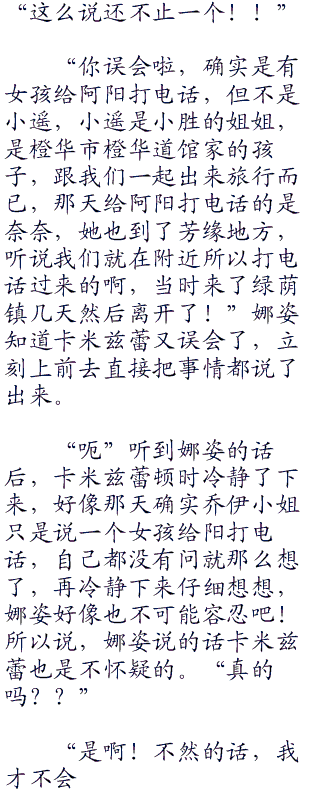 “这么说还不止一个！！”
“你误会啦，确实是有
女孩给阿阳打电话，但不是
小遥，小遥是小胜的姐姐，
是橙华市橙华道馆家的孩
子，跟我们一起出来旅行而
已，那天给阿阳打电话的是
奈奈，她也到了芳缘地方，
听说我们就在附近所以打电
话过来的啊，当时来了绿荫
镇几天然后离开了！”娜姿
知道卡米兹蕾又误会了，立
刻上前去直接把事情都说了
出来。
“呃”听到娜姿的话
后，卡米兹蕾顿时冷静了下
来，好像那天确实乔伊小姐
只是说一个女孩给阳打电
话，自己都没有问就那么想
了，再冷静下来仔细想想，
娜姿好像也不可能容忍吧！
所以说，娜姿说的话卡米兹
蕾也是不怀疑的。“真的
吗？？”
“是啊！不然的话，我
才不会